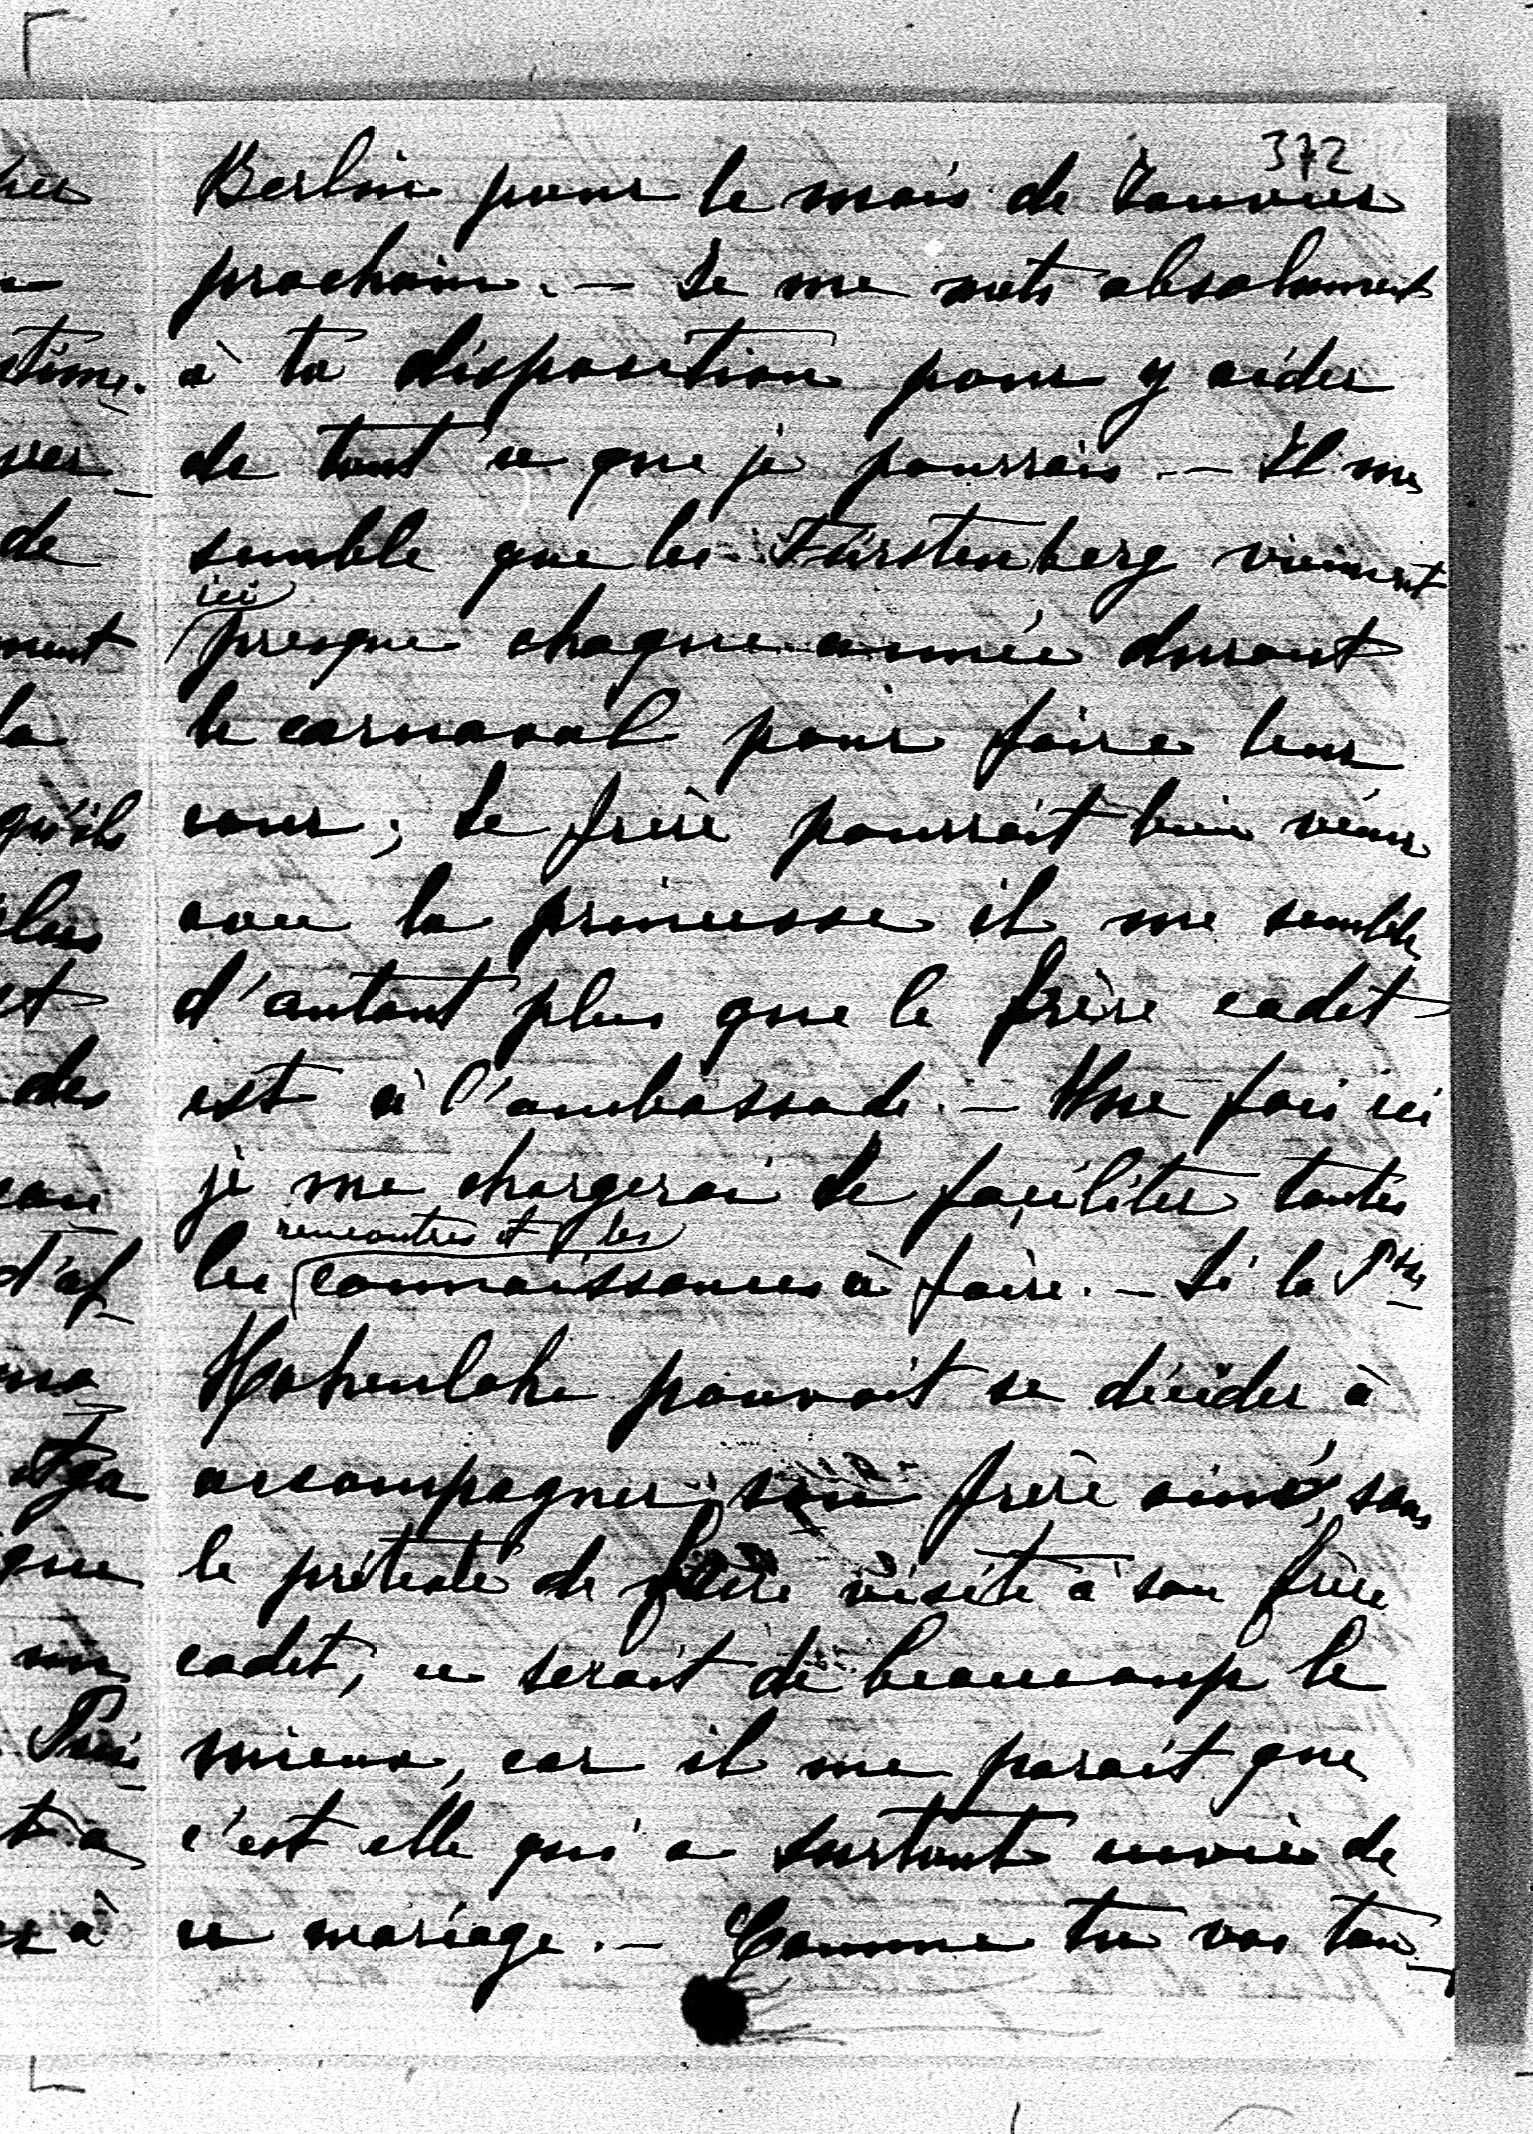 372
Berlin pour le mois de Janvier
prochain. — Je me mets absolument
à ta disposition pour y aider
de tout ce que je pourrais. — Il me
semble que les Fürstenberg viennent
ici
presque chaque année durant
le carnaval pour faire leur
cour; le frère pourrait bien venir
avec la princesse il me semble
d'autant plus que le frère cadet
est à l'ambassade. — Une fois ici
je me chargerai de faciliter toutes
rencontres et les
les connaissances à faire. — Si la Psse
Hohenlohe pouvait se décider à
accompagner son frère ainé, sous
le prétexte de faire visite à son frère
cadet, ce serait de beaucoup le
mieux, car il me parait que
c'est elle qui a surtout envie de
ce mariage. — Comme tu vas tou-